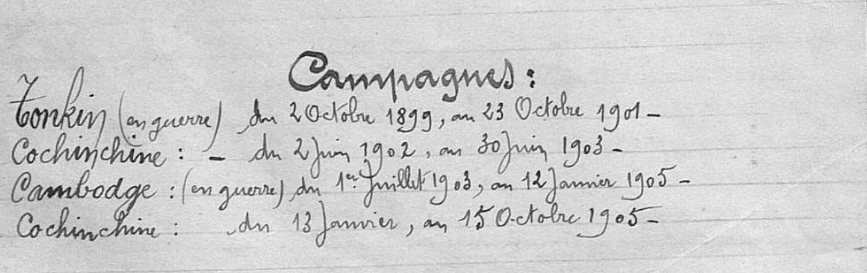 Campagnes :
Tonkin (en guerre) du 2 Octobre 1899, au 23 Octobre 1901 –
Cochinchine : – du 2 Juin 1902, au 30 Juin 1903 –
Cambodge : (en guerre) du 1er Juillet 1903, au 12 Janvier 1905 –
Cochinchine : du 13 Janvier, au 15 Octobre 1905 –